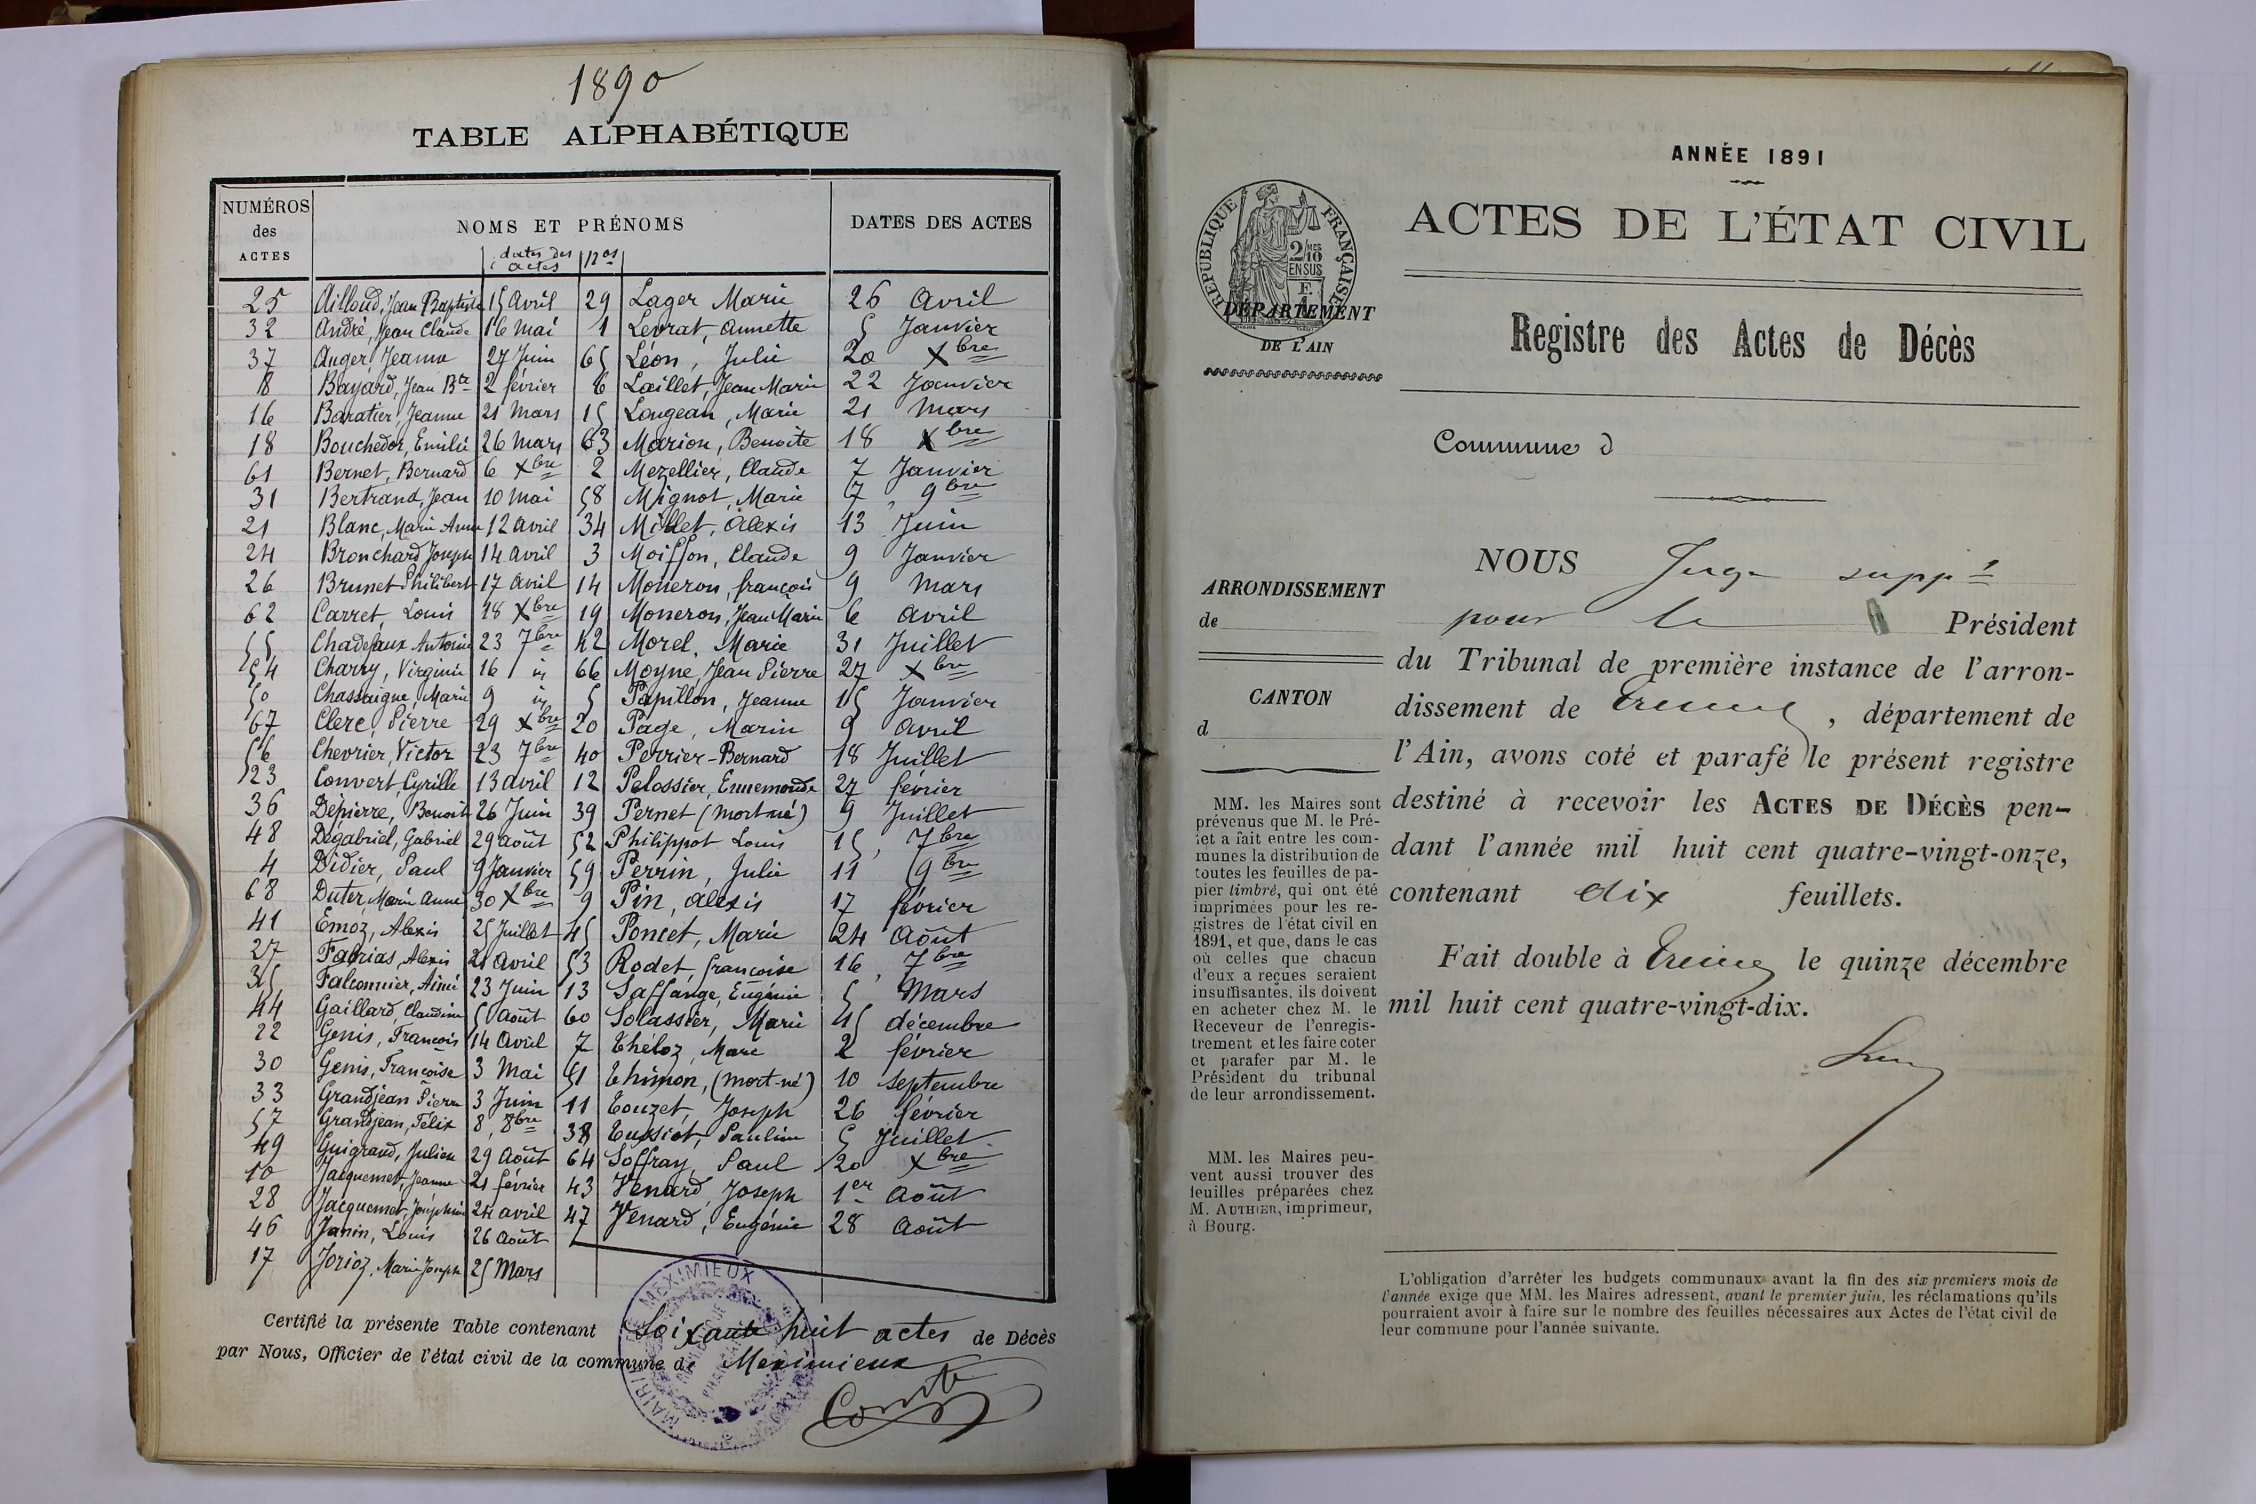 1890
TABLE ALPHABÉTIQUE
NUMÉROS des ACTES
NOMS ET PRÉNOMS
DATES DES ACTES
dates des actes
nos
25 Ailloud, Jean Baptiste 15 avril 29 Lager Marie 26 avril
32 André, Jean Claude 16 mai 1 Levrat, Annette 5 Janvier
37 Auger, Jeanne 27 Juin 65 Léon, Julie 20 Xbre
8 Bayard, Jean Bte 2 février 6 Laillet, Jean Marie 22 Janvier
16 Baratier, Jeanne 21 mars 15 Longean, Marie 21 mars
18 Bouchedor, Emilie 26 mars 63 Marion, Benoite 18 Xbre
61 Bernet, Bernard 6 Xbre 2 Mezellier, Claude 7 Janvier
31 Bertrand, Jean 10 mai 58 Mignot, Marie 7 9bre
21 Blanc, Marie Anne 12 avril 34 Millet, Alexis 13 Juin
24 Bronchard Joseph 14 avril 3 Moiffon, Claude 9 Janvier
26 Brunet Philibert 17 avril 14 Moneron, françois 9 mars
62 Carret, Louis 18 Xbre 19 Moneron, Jean Marie 6 avril
55 Chadefaux Antoine 23 7bre 42 Morel, Marie 31 Juillet
54 Charry, Virginie 16 66 Moyne, Jean Pierre 27 Xbre
50 Chassaigne, Marie 9 5 Papillon, Jeanne 15 Janvier
67 Clerc, Pierre 29 Xbre 20 Page, Marin 9 avril
56 Chevrier, Victor 23 7bre 40 Perrier-Bernard 18 Juillet
23 Convert, Cyrille 13 avril 12 Pelossier, Ennemonde 27 février
36 Dépierre, Benoit 26 Juin 39 Pernet (mort né) 9 Juillet
48 Dégabriel, Gabriel 29 août 52 Philippot Louis 15, 7bre
4 Didier, Paul 9 Janvier 59 Perrin, Julie 11 9bre
68 Duter, Marie Anne 30 Xbre 9 Pin, Alexis 17 février
41 Emoz, Alexis 25 Juillet 45 Poncet, Marie 24 août
27 Fabrias, Alexis 21 avril 53 Rodet, françoise 16, 7bre
35 Falconnier, Aimé 23 Juin 13 Saffange, Eugénie 5 mars
44 Gaillard, Claudine 5 août 60 Solassier, Marie 15 décembre
22 Genis, François 14 avril 7 Théloz, Marc 2 février
30 Genis, Françoise 3 Mai 51 Thimon, (mort-né) 10 septembre
33 Grandjean Pierre 3 Juin 11 Touzet, Joseph 26 février
57 Grandjean, Félix 8, 8bre 38 Tussiot, Pauline 5 Juillet
49 Guigrand, Julien 29 août 64 Soffray, Paul 20 Xbre
10 Jacquemet, Jeanne 21 février 43 Venard, Joseph 1er août
28 Jacquemet, Joséphine 24 avril 47 Venard, Eugénie 28 août
46 Janin, Louis 26 août
17 Jorioz, Marie Joseph 25 mars
Certifié la présente Table contenant Soixante huit actes de Décès
par Nous, Officier de l'état civil de la commune de Meximieux
MAIRIE DE MEXIMIEUX
ANNÉE 1891
ACTES DE L'ÉTAT CIVIL
RÉPUBLIQUE FRANÇAISE
2/10 MES
EN SUS
DÉPARTEMENT
DE L'AIN
Registre des Actes de Décès
Commune d
NOUS Juge suppt
pour le Président
du Tribunal de première instance de l'arron-
dissement de Trévoux, département de
l'Ain, avons coté et parafé le présent registre
destiné à recevoir les ACTES DE DÉCÈS pen-
dant l'année mil huit cent quatre-vingt-onze,
contenant dix feuillets.
Fait double à Trévoux le quinze décembre
mil huit cent quatre-vingt-dix.
ARRONDISSEMENT
de
CANTON
d
MM. les Maires sont
prévenus que M. le Pré-
fet a fait entre les com-
munes la distribution de
toutes les feuilles de pa-
pier timbré, qui ont été
imprimées pour les re-
gistres de l'état civil en
1891, et que, dans le cas
où celles que chacun
d'eux a reçues seraient
insuffisantes, ils doivent
en acheter chez M. le
Receveur de l'enregis-
trement et les faire coter
et parafer par M. le
Président du tribunal
de leur arrondissement.
MM. les Maires peu-
vent aussi trouver des
feuilles préparées chez
M. AUTHIER, imprimeur,
à Bourg.
L'obligation d'arrêter les budgets communaux avant la fin des six premiers mois de
l'année exige que MM. les Maires adressent, avant le premier juin, les réclamations qu'ils
pourraient avoir à faire sur le nombre des feuilles nécessaires aux Actes de l'état civil de
leur commune pour l'année suivante.